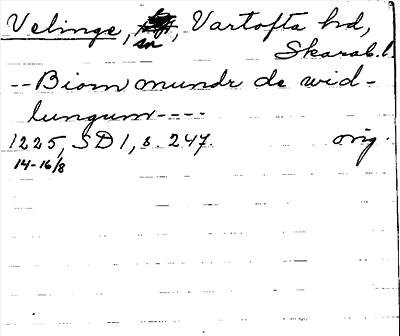 Velinge, sn, Vartofta hd,
Skarab.l.
--Biorn mundr de wid-
lungum----
1225, SD 1, s. 247. orig.
14-16/8